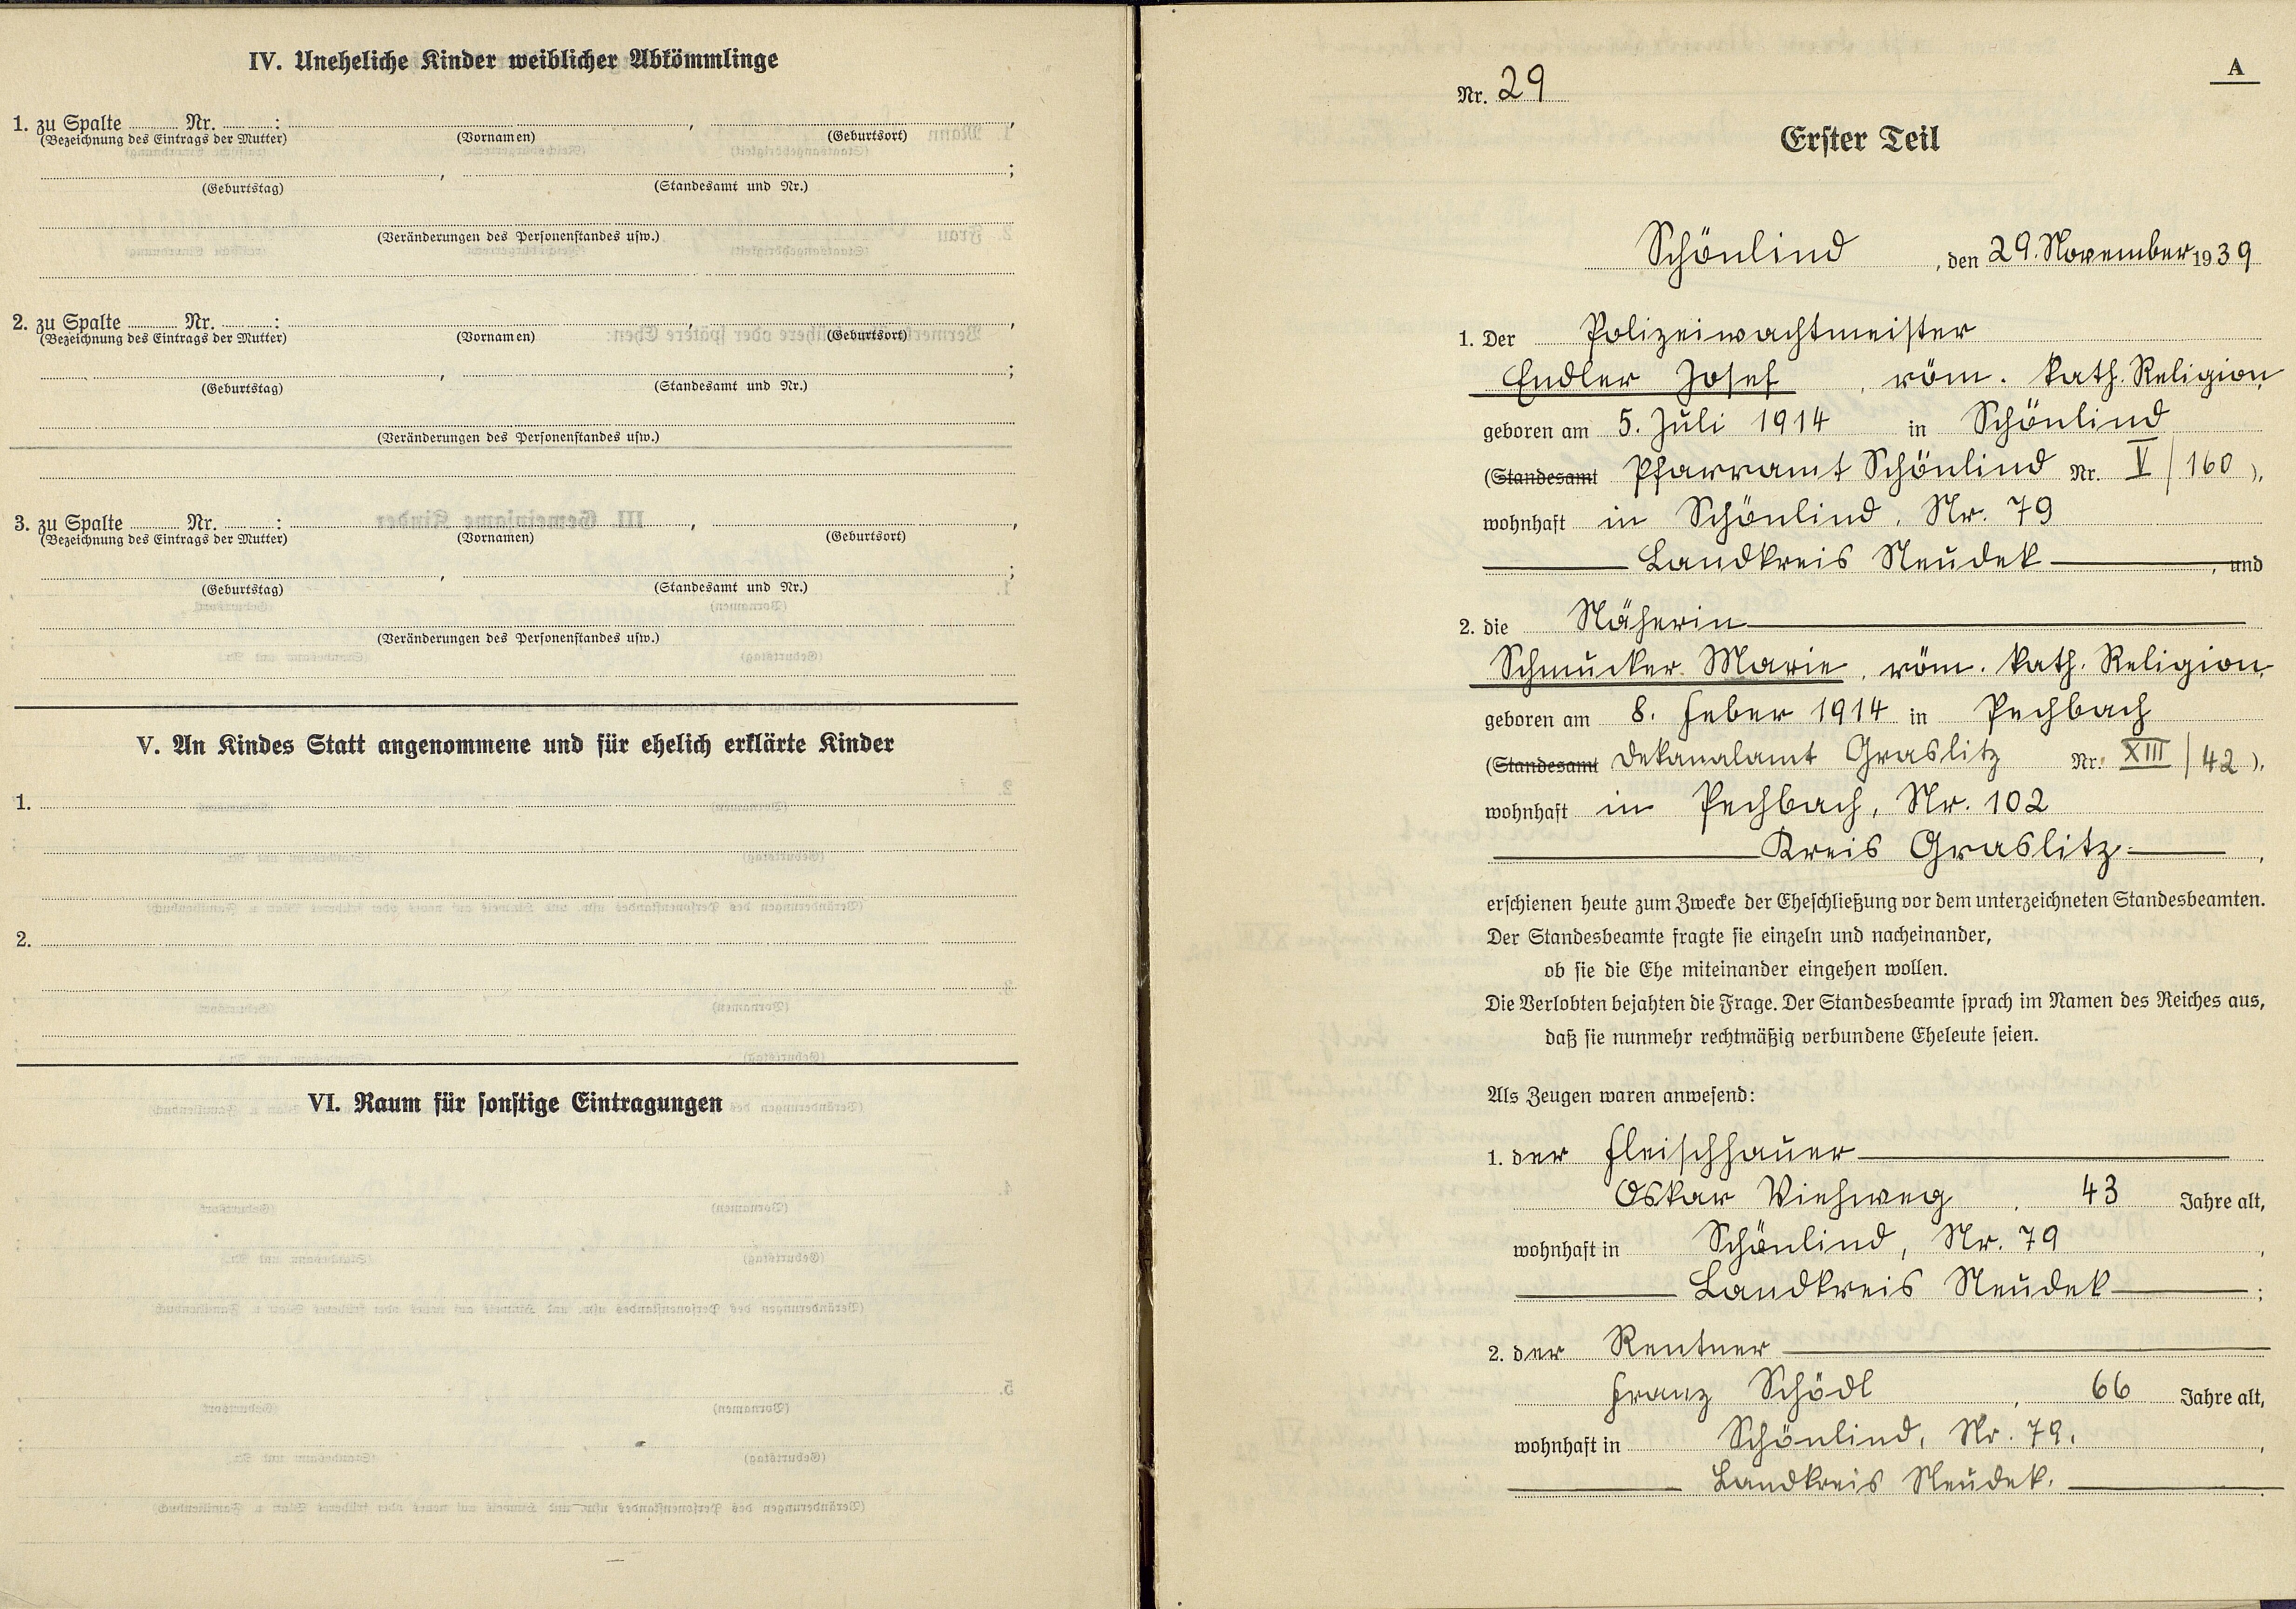 IV. Uneheliche Kinder weiblicher Abkömmlinge
1. zu Spalte ........ Nr. ........: ........, ........,
(Bezeichnung des Eintrags der Mutter) (Vornamen) (Geburtsort)
........, ........;
(Geburtstag) (Standesamt und Nr.)
(Veränderungen des Personenstandes usw.)
2. zu Spalte ........ Nr. ........: ........, ........,
(Bezeichnung des Eintrags der Mutter) (Vornamen) (Geburtsort)
........, ........;
(Geburtstag) (Standesamt und Nr.)
(Veränderungen des Personenstandes usw.)
3. zu Spalte ........ Nr. ........: ........, ........,
(Bezeichnung des Eintrags der Mutter) (Vornamen) (Geburtsort)
........, ........;
(Geburtstag) (Standesamt und Nr.)
(Veränderungen des Personenstandes usw.)
V. An Kindes Statt angenommene und für ehelich erklärte Kinder
1.
2.
VI. Raum für sonstige Eintragungen
A
Nr. 29
Erster Teil
Schönlind, den 29. November 1939
1. Der Polizeiwachtmeister
Endler Josef, röm. kath. Religion,
geboren am 5. Juli 1914 in Schönlind
(Standesamt Pfarramt Schönlind Nr. V/160),
wohnhaft in Schönlind, Nr. 79
Landkreis Neudek, und
2. die Näherin
Schmucker Marie, röm. kath. Religion,
geboren am 8. Feber 1914 in Pechbach
(Standesamt Dekanalamt Graslitz Nr. XIII/42),
wohnhaft in Pechbach, Nr. 102
Kreis Graslitz.
erschienen heute zum Zwecke der Eheschließung vor dem unterzeichneten Standesbeamten.
Der Standesbeamte fragte sie einzeln und nacheinander,
ob sie die Ehe miteinander eingehen wollen.
Die Verlobten bejahten die Frage. Der Standesbeamte sprach im Namen des Reiches aus,
daß sie nunmehr rechtmäßig verbundene Eheleute seien.
Als Zeugen waren anwesend:
1. der Fleischhauer
Oskar Viehweg, 43 Jahre alt,
wohnhaft in Schönlind, Nr. 79,
Landkreis Neudek;
2. der Rentner
Franz Schödl, 66 Jahre alt,
wohnhaft in Schönlind, Nr. 79.,
Landkreis Neudek.